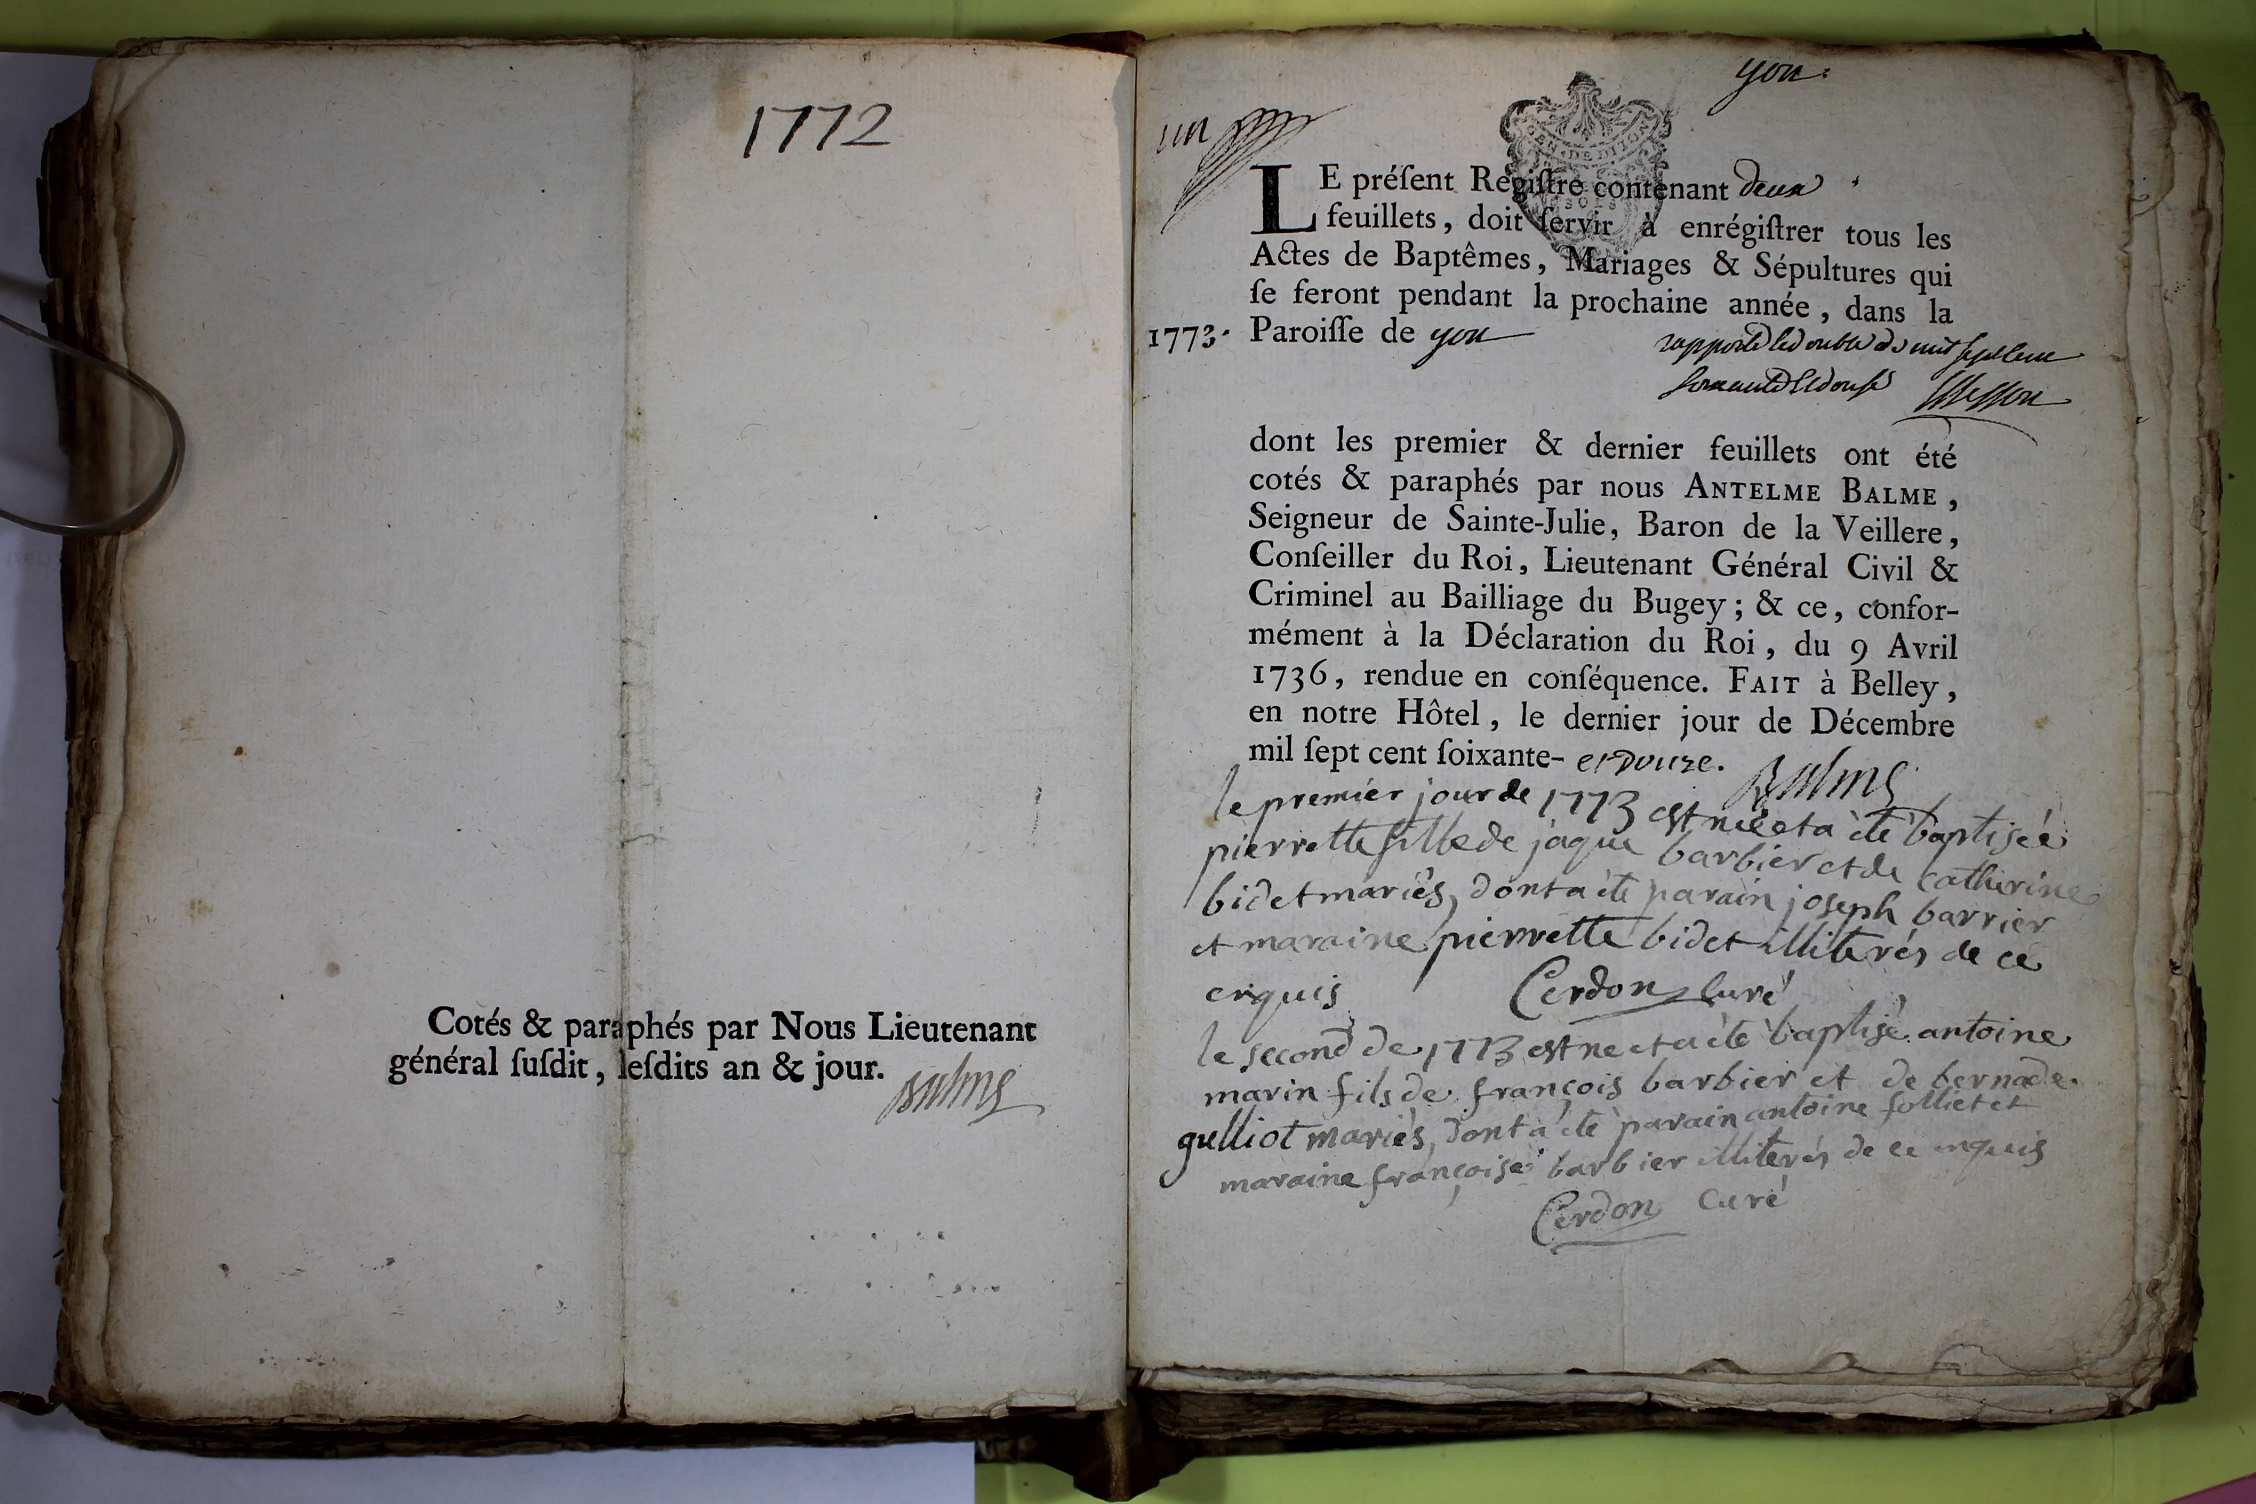 1772
Cotés & paraphés par Nous Lieutenant
général ſuſdit, leſdits an & jour.
Balme
yon.
un
GEN · DE DIJON
LE préſent Regiſtre contenant deux
feuillets, doit ſervir à enrégiſtrer tous les
Actes de Baptêmes, Mariages & Sépultures qui
ſe feront pendant la prochaine année, dans la
1773. Paroiſſe de yon
rapporté le double de mil sept cent
soixante et douse
dont les premier & dernier feuillets ont été
cotés & paraphés par nous ANTELME BALME,
Seigneur de Sainte-Julie, Baron de la Veillere,
Conſeiller du Roi, Lieutenant Général Civil &
Criminel au Bailliage du Bugey; & ce, confor-
mément à la Déclaration du Roi, du 9 Avril
1736, rendue en conſéquence. FAIT à Belley,
en notre Hôtel, le dernier jour de Décembre
mil ſept cent ſoixante- et Douze.
Balme
le premier jour de 1773 est née et a èté baptisée
pierrette fille de jaque barbier et de Catherine
bidet mariés, dont a èté parain joseph barrier
et maraine pierrette bidet illiterés de ce
enquis Cerdon Curé
le second de 1773 est ne et a èté baptisé antoine
marin fils de françois barbier et de bernade
gulliot mariés, dont a èté parain antoine folliet et
maraine françoise barbier illiterés de ce enquis
Cerdon Curé